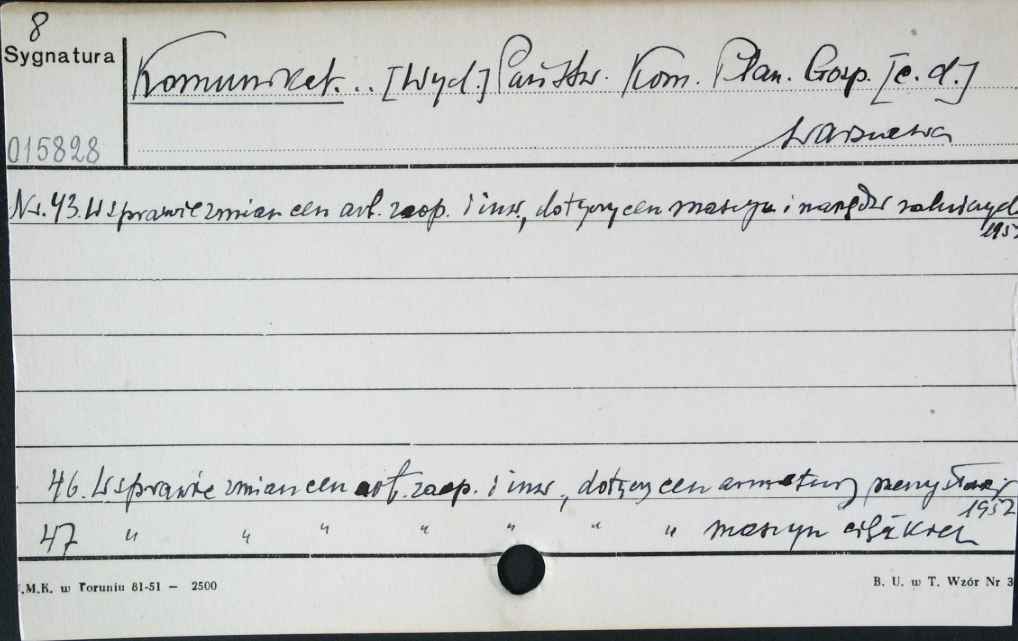 8
Sygnatura
Komunikat... [Wyd.] Państw. Kom. Plan. Gosp. [c. d.]
015828
Warszawa
Nr. 43. W sprawie zmian cen art. zaop. i inw., dotyczy cen maszyn i narzędzi rolniczych
1952
46. W sprawie zmian cen art. zaop. i inw., dotyczy cen armatury przemysłowej
1952
47 " " " " " " " maszyn
.M.K. w Toruniu 81-51 — 2500
B. U. w T. Wzór Nr 3